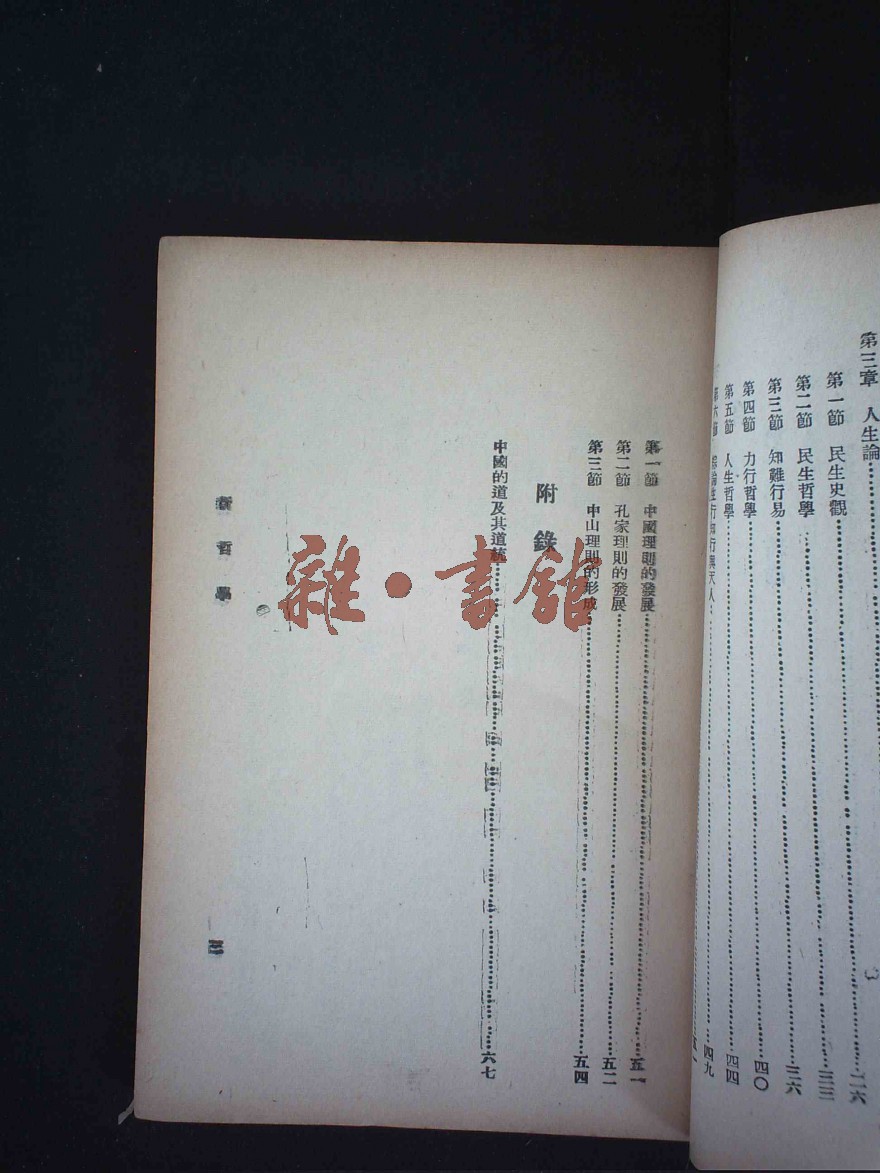 第三章 人生論
第一節 民生史觀……二六
第二節 民生哲學……三三
第三節 知難行易……三六
第四節 力行哲學……四〇
第五節 人生哲學……四四
第六節 綜論生行知行與天人……四九
第一節 中國理則的發展……五一
第二節 孔家理則的發展……五二
第三節 中山理則的形成……五四
附錄
中國的道及其道統……六七
新哲學
三
雜·書館